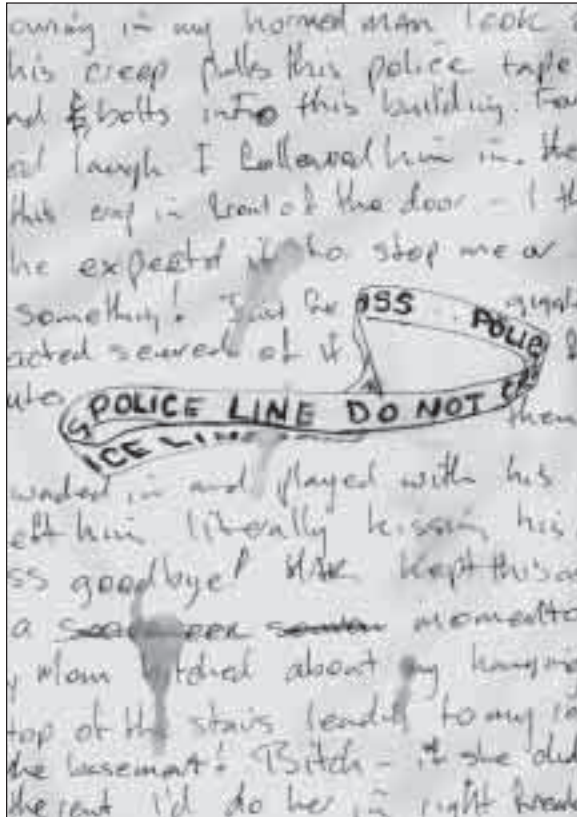 owing in my horned man look
his creep pulls this police tape
nd & bolts into this building. For
ed laugh I followed him in. the
this crap in front of the door - I th
he expected it to stop me or
something! Just for giggl
acted scared of it
OSS POLIC
POLICE LINE DO NOT CR
ICE LINE
uto them
waded in and played with his
eft him literally kissing his
ss goodbye! Kept this a
a momento
y Mom bitched about my hanging
top of the stairs leading to my
the basement! Bitch - if she did
the rent I'd do her in right